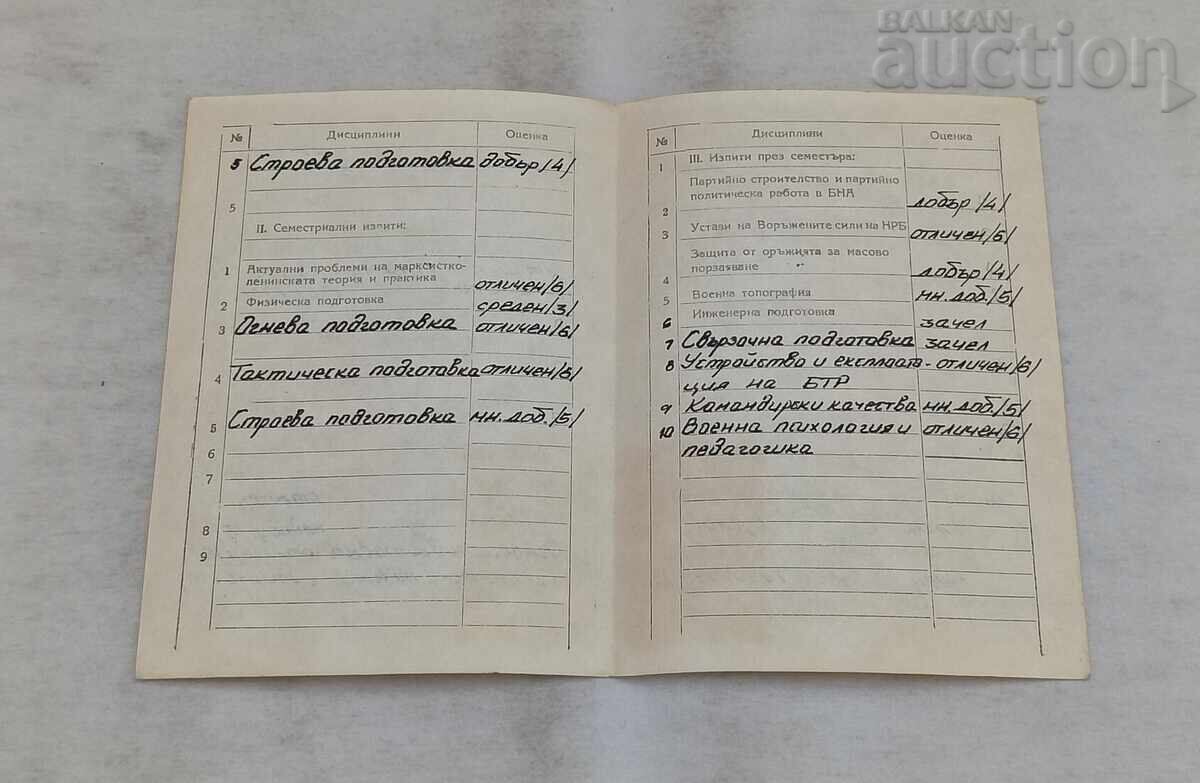 BALKAN
auction
№ Дисциплини Оценка
5 Строева подготовка добър /4/
5
II. Семестриални изпити:
1 Актуални проблеми на марксистко-
ленинската теория и практика отличен /6/
2 Физическа подготовка среден /3/
3 Огнева подготовка отличен /6/
4 Тактическа подготовка отличен /6/
5 Строева подготовка мн. доб. /5/
6
7
8
9
№ Дисциплини Оценка
1 III. Изпити през семестъра:
Партийно строителство и партийно
политическа работа в БНА
2 добър /4/
3 Устави на Воръжените сили на НРБ отличен /6/
Защита от оръжията за масово
порзаяване
4 добър /4/
5 Военна топография мн. доб. /5/
6 Инженерна подготовка зачел
7 Свързочна подготовка зачел
8 Устройство и експлоата - отличен /6/
ция на БТР
9 Командирски качества мн. доб. /5/
10 Военна психология и отличен /6/
педагогика